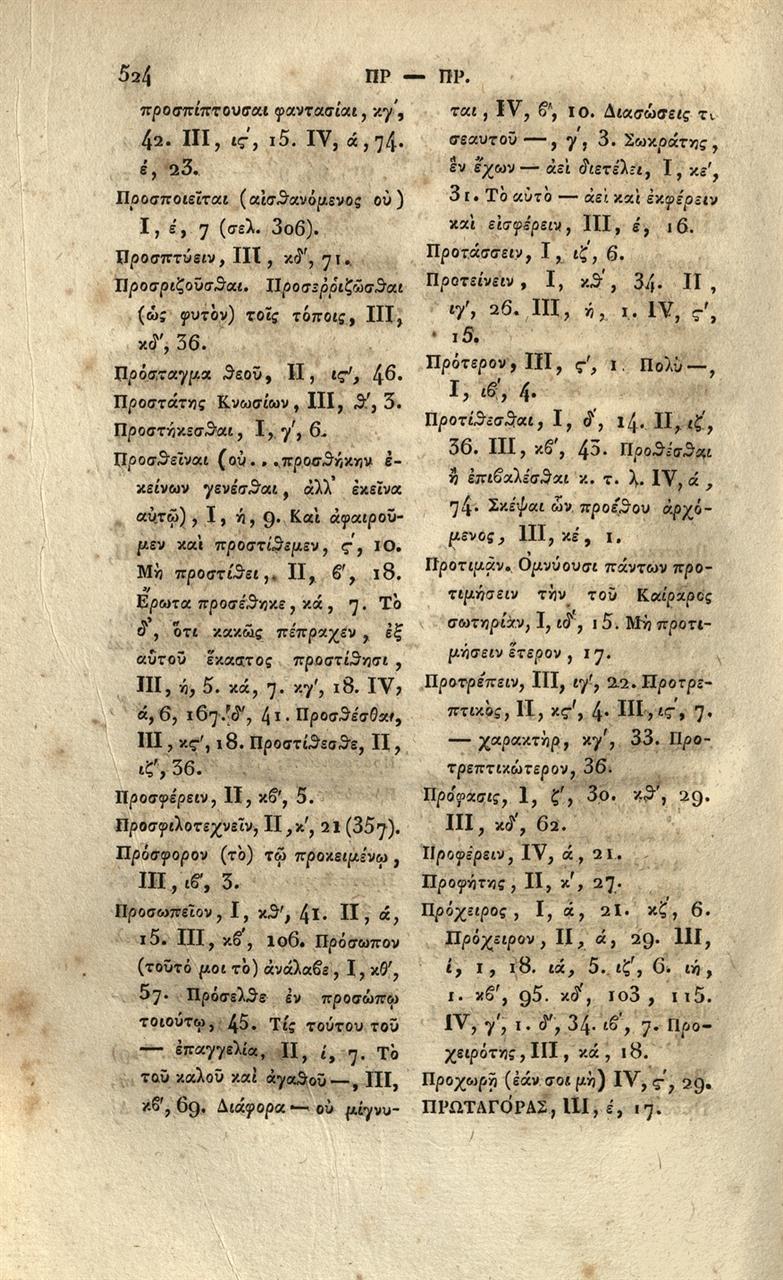 524
ΠΡ — ΠΡ.
προσπίπτουσαι φαντασίαι, κγ΄,
42. III, ις΄, 15. IV, ά, 74.
έ, 23.
Προσποιεῖται (αἰσθανόμενος οὐ)
I, έ, 7 (σελ. 306).
Προσπτύειν, III, κδ΄, 71.
Προσριζοῦσθαι. Προσεῤῥιζῶσθαι
(ὡς φυτὸν) τοῖς τόποις, III,
κδ΄, 36.
Πρόσταγμα θεοῦ, II, ις΄, 46.
Προστάτης Κνωσίων, III, θ΄, 3.
Προστήκεσθαι, I, γ΄, 6.
Προσθεῖναι (οὐ...προσθήκην ἐ-
κείνων γενέσθαι, ἀλλ᾽ ἐκεῖνα
αὑτῷ), I, ή, 9. Καὶ ἀφαιροῦ-
μεν καὶ προστίθεμεν, ς΄, 10.
Μὴ προστίθει, II, β΄, 18.
Ἔρωτα προσέθηκε, κά, 7. Τὸ
δ᾽, ὅτι κακῶς πέπραχεν, ἐξ
αὑτοῦ ἕκαστος προστίθησι,
III, ή, 5. κά, 7. κγ΄, 18. IV,
ά, 6, 167. δ΄, 41. Προσθέσθαι,
III, κς΄, 18. Προστίθεσθε, II,
ιζ΄, 36.
Προσφέρειν, II, κβ΄, 5.
Προσφιλοτεχνεῖν, II, κ΄, 21 (357).
Πρόσφορον (τὸ) τῷ προκειμένῳ,
III, ιβ΄, 3.
Προσωπεῖον, I, κθ΄, 41. II, ά,
15. III, κβ΄, 106. Πρόσωπον
(τοῦτό μοι τὸ) ἀνάλαβε, I, κθ΄,
57. Πρόσελθε ἐν προσώπῳ
τοιούτῳ, 45. Τίς τούτου τοῦ
— ἐπαγγελία, II, ί, 7. Τὸ
τοῦ καλοῦ καὶ ἀγαθοῦ —, III,
κβ΄, 69. Διάφορα — οὐ μίγνυ-
ται, IV, β΄, 10. Διασώσεις τι
σεαυτοῦ —, γ΄, 3. Σωκράτης,
ἓν ἔχων — ἀεὶ διετέλει, I, κε΄,
31. Τὸ αὐτὸ — ἀεὶ καὶ ἐκφέρειν
καὶ εἰσφέρειν, III, έ, 16.
Προτάσσειν, I, ιζ΄, 6.
Προτείνειν, I, κθ΄, 34. II,
ιγ΄, 26. III, ή, 1. IV, ς΄,
15.
Πρότερον, III, ς΄, 1. Πολὺ —,
I, ιβ΄, 4.
Προτίθεσθαι, I, δ΄, 14. II, ιζ΄,
36. III, κβ΄, 43. Προθέσθαι
ἢ ἐπιβαλέσθαι κ. τ. λ. IV, ά,
74. Σκέψαι ὧν προέθου ἀρχό-
μενος, III, κέ, 1.
Προτιμᾷν. Ὀμνύουσι πάντων προ-
τιμήσειν τὴν τοῦ Καίσαρος
σωτηρίαν, I, ιδ΄, 15. Μὴ προτι-
μήσειν ἕτερον, 17.
Προτρέπειν, III, ιγ΄, 22. Προτρε-
πτικὸς, II, κς΄, 4. III, ις΄, 7.
— χαρακτὴρ, κγ΄, 33. Προ-
τρεπτικώτερον, 36.
Πρόφασις, I, ζ΄, 30. κθ΄, 29.
III, κδ΄, 62.
Προφέρειν, IV, ά, 21.
Προφήτης, II, κ΄, 27.
Πρόχειρος, I, ά, 21. κζ΄, 6.
Πρόχειρον, II, ά, 29. III,
ί, 1, 18. ιά, 5. ιζ΄, 6. ιή,
1. κβ΄, 95. κδ΄, 103, 115.
IV, γ΄, 1. δ΄, 34. ιβ΄, 7. Προ-
χειρότης, III, κά, 18.
Προχωρῇ (ἐάν σοι μὴ) IV, ς΄, 29.
ΠΡΩΤΑΓΟΡΑΣ, III, έ, 17.